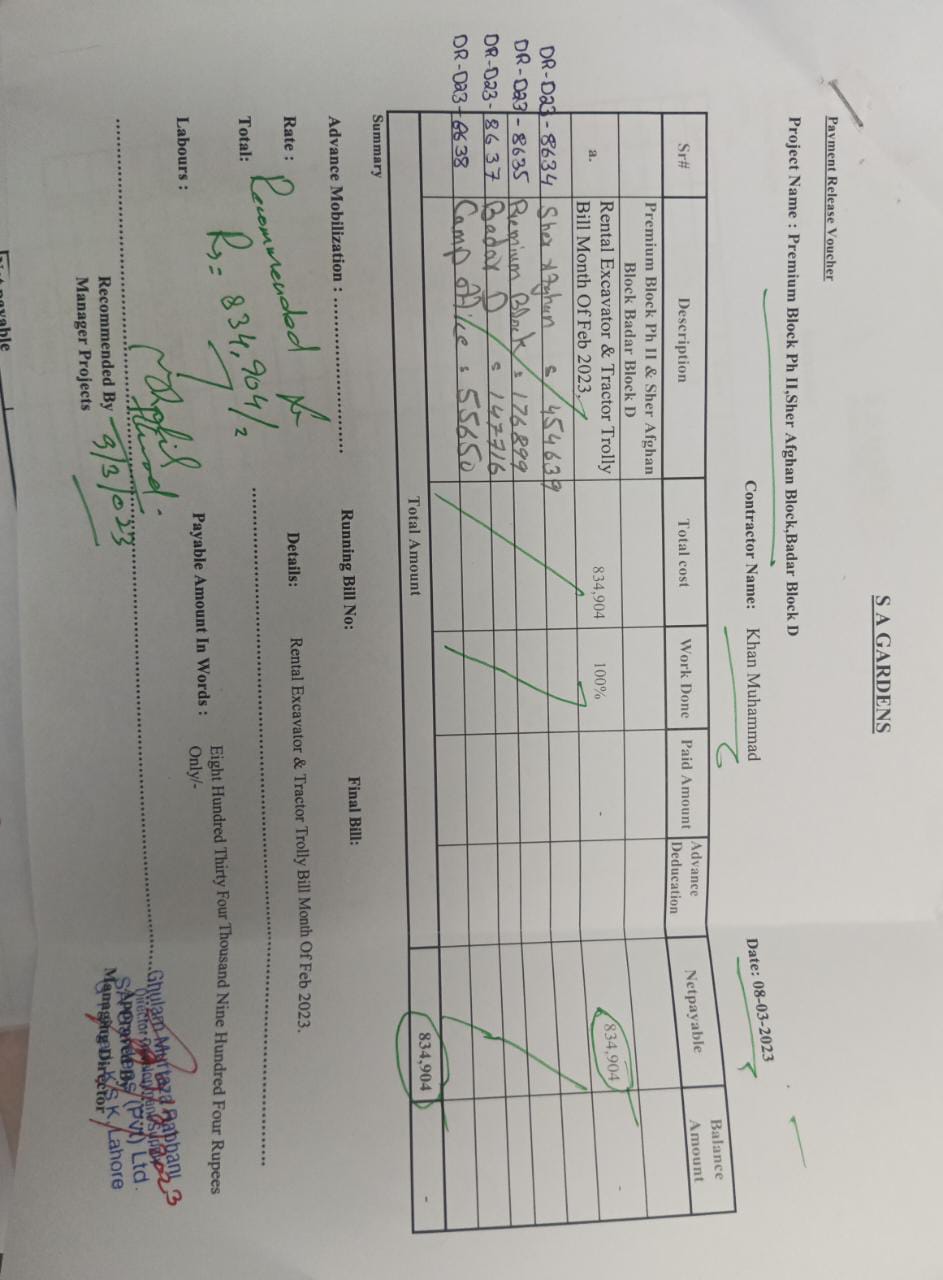 S A GARDENS
Payment Release Voucher
Project Name : Premium Block Ph II,Sher Afghan Block,Badar Block D
Contractor Name: Khan Muhammad
Date: 08-03-2023
Sr# Description Total cost Work Done Paid Amount Advance Deducation Netpayable Balance Amount
Premium Block Ph II & Sher Afghan
Block Badar Block D
a. Rental Excavator & Tractor Trolly 834,904 100% - 834,904 -
Bill Month Of Feb 2023,
DR-D23-8634 Sher Afghan = 454639
DR-D23-8635 Premium Block = 176899
DR-D23-8637 Badar D = 147716
DR-D23-8638 Camp office = 55650
Total Amount 834,904 -
Summary
Advance Mobilization : .................... Running Bill No: Final Bill:
Rate : Recommended Details: Rental Excavator & Tractor Trolly Bill Month Of Feb 2023.
Total: Rs= 834,904/=
Labours : Payable Amount In Words : Eight Hundred Thirty Four Thousand Nine Hundred Four Rupees
Only/-
Recommended By 9/3/023
Manager Projects
Ghulam Murtaza Rabbani
Director
S.A Gardens (Pvt) Ltd.
K.S.K Lahore
Approved By
Managing Director
Net payable